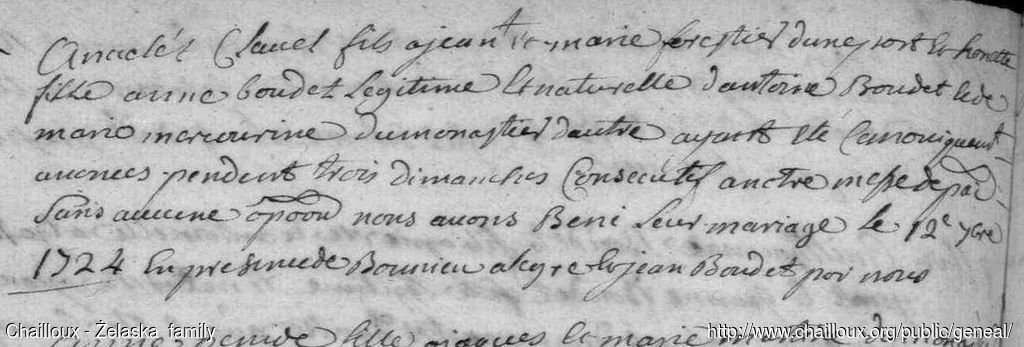 Anaclét Clauel fils a jean et marie forestier dune part et honette
fille anne boudet Legitime et naturelle dantoine Boudet et de
marie mercourine dumonastier dautre ayant eté Canoniquemt
anences pendent trois dimanches Consecutifs a notre messe de par
Sans aucune oppoon nous avons Beni Leur mariage le 12e 7bre
1724 En presence de Bounieu aleyre et jean Boudet por nous
fille ajaques et marie
Chailloux - Żelaska family
http://www.chailloux.org/public/geneal/